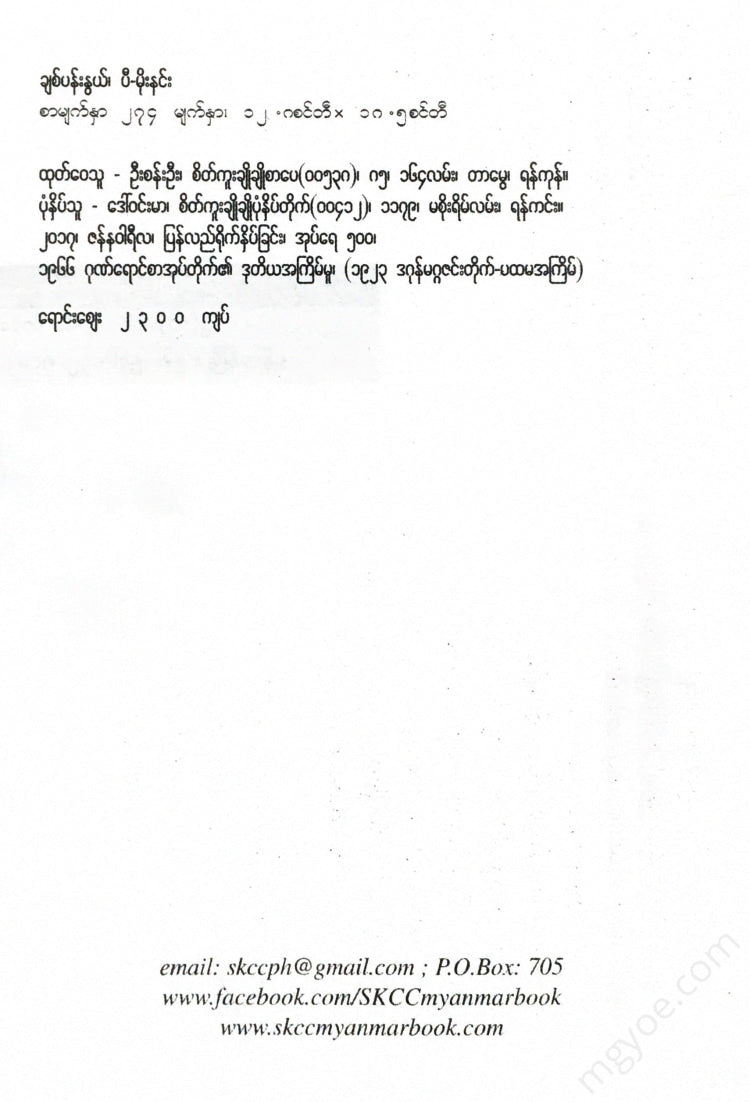 ချစ်ပန်းနွယ်၊ ပီ-မိုးနင်း
စာမျက်နှာ ၂၇၄ မျက်နှာ၊ ၁၂ .ဂစင်တီ× ၁၈ .၅စင်တီ
ထုတ်ဝေသူ - ဦးစန်းဦး၊ စိတ်ကူးချိုချိုစာပေ(၀၀၅၃၈)၊ ဂ၅၊ ၁၆၄လမ်း၊ တာမွေ၊ ရန်ကုန်။
ပုံနှိပ်သူ - ဒေါ်ဝင်းမာ၊ စိတ်ကူးချိုချိုပုံနှိပ်တိုက်(၀၀၄၁၂)၊ ၁၁၇၉၊ မစိုးရိမ်လမ်း၊ ရန်ကင်း။
၂၀၁၇၊ ဇန်နဝါရီလ၊ ပြန်လည်ရိုက်နှိပ်ခြင်း၊ အုပ်ရေ ၅၀၀၊
၁၉၆၆ ဂုဏ်ရောင်စာအုပ်တိုက်၏ ဒုတိယအကြိမ်မူ၊ (၁၉၂၃ ဒဂုန်မဂ္ဂဇင်းတိုက်-ပထမအကြိမ်)
ရောင်းဈေး ၂၃၀၀ ကျပ်
email: skccph@gmail.com ; P.O.Box: 705
www.facebook.com/SKCCmyanmarbook
www.skccmyanmarbook.com
mgyoe.com